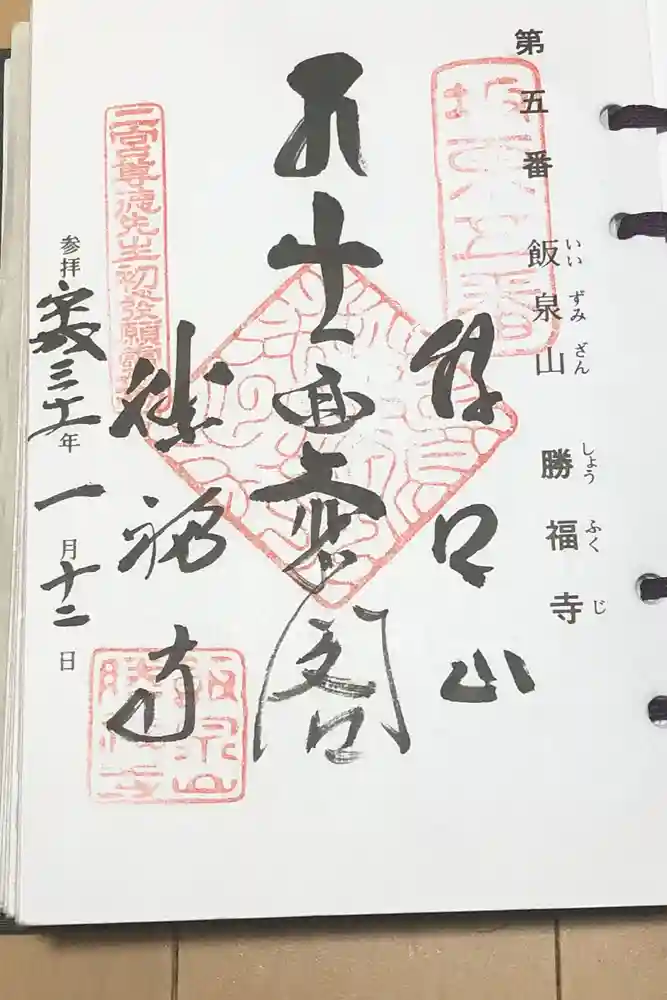 第五番 飯泉山 勝福寺
いいずみざん しょうふくじ
坂東五番
山
面大悲閣
勝福寺
二宮尊徳先生初発願霊
飯泉山
勝福寺
参拝 平成三十一年 一月十二日